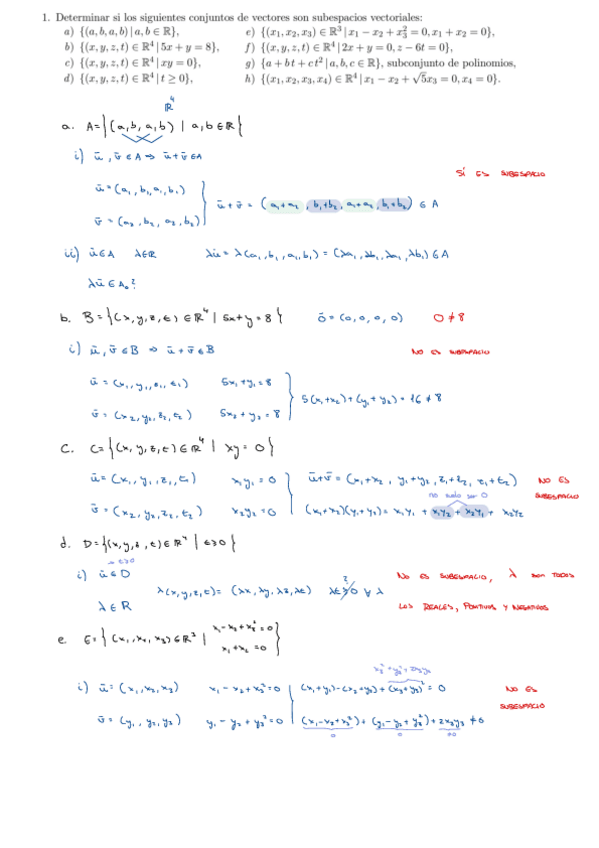 1. Determinar si los siguientes conjuntos de vectores son subespacios vectoriales:
a) {(a, b, a, b) | a, b ∈ ℝ},
b) {(x, y, z, t) ∈ ℝ⁴ | 5x + y = 8},
c) {(x, y, z, t) ∈ ℝ⁴ | xy = 0},
d) {(x, y, z, t) ∈ ℝ⁴ | t ≥ 0},
e) {(x₁, x₂, x₃) ∈ ℝ³ | x₁ − x₂ + x₃² = 0, x₁ + x₂ = 0},
f) {(x, y, z, t) ∈ ℝ⁴ | 2x + y = 0, z − 6t = 0},
g) {a + bt + ct² | a, b, c ∈ ℝ}, subconjunto de polinomios,
h) {(x₁, x₂, x₃, x₄) ∈ ℝ⁴ | x₁ − x₂ + √5x₃ = 0, x₄ = 0}.
ℝ⁴
a. A={(a,b,a,b) | a,b∈ℝ}
i) ū, v̄ ∈ A ⇒ ū+v̄ ∈ A
SÍ ES SUBESPACIO
ū = (a₁, b₁, a₁, b₁)
v̄ = (a₂, b₂, a₂, b₂)
ū+v̄ = (a₁+a₂, b₁+b₂, a₁+a₂, b₁+b₂) ∈ A
ii) ū∈A λ∈ℝ λū = λ(a₁, b₁, a₁, b₁) = (λa₁, λb₁, λa₁, λb₁) ∈ A
λū ∈ A?
b. B = {(x,y,z,t) ∈ ℝ⁴ | 5x+y = 8} ō = (0,0,0,0) 0 ≠ 8
i) ū, v̄ ∈ B ⇒ ū+v̄ ∈ B
NO ES SUBESPACIO
ū = (x₁, y₁, z₁, t₁) 5x₁ + y₁ = 8
v̄ = (x₂, y₂, z₂, t₂) 5x₂ + y₂ = 8
5(x₁+x₂) + (y₁+y₂) = 16 ≠ 8
C. C={(x,y,z,t) ∈ ℝ⁴ | xy = 0}
ū = (x₁, y₁, z₁, t₁) x₁y₁ = 0 ū+v̄ = (x₁+x₂, y₁+y₂, z₁+z₂, t₁+t₂)
NO ES SUBESPACIO
no suele ser 0
v̄ = (x₂, y₂, z₂, t₂) x₂y₂ = 0 (x₁+x₂)(y₁+y₂) = x₁y₁ + x₁y₂ + x₂y₁ + x₂y₂
d. D={(x,y,z,t) ∈ ℝ⁴ | t≥0}
t≥0
i) ū∈D
λ∈ℝ
λ(x,y,z,t) = (λx, λy, λz, λt) λt ≥ 0 ∀ λ
?
NO ES SUBESPACIO, λ son TODOS
LOS REALES, POSITIVOS Y NEGATIVOS
e. E={(x₁, x₂, x₃) ∈ ℝ³ | x₁−x₂+x₃²=0
x₁+x₂=0}
x₃²+y₃²+2x₃y₃
i) ū = (x₁, x₂, x₃) x₁ − x₂ + x₃² = 0 (x₁+y₁)−(x₂+y₂)+(x₃+y₃)² = 0
NO ES SUBESPACIO
v̄ = (y₁, y₂, y₃) y₁ − y₂ + y₃² = 0 (x₁−x₂+x₃²)+(y₁−y₂+y₃²)+2x₃y₃ ≠ 0
0 0 ≠0